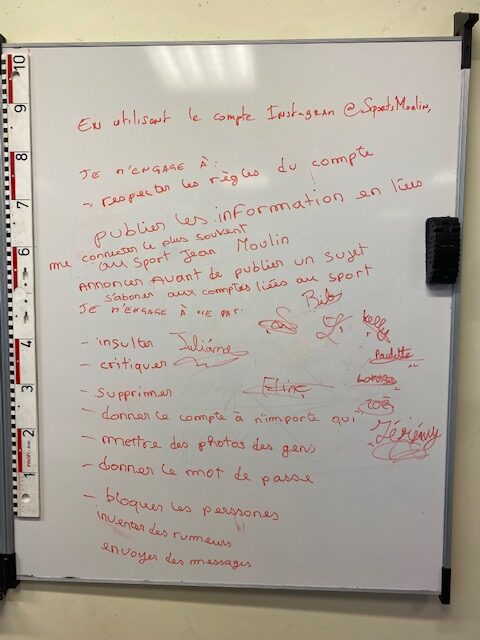 En utilisant le compte Instagram @SportsMoulin,
Je m'engage à:
- respecter les règles du compte
publier les information en liées
me connecter le plus souvent
au Sport Jean Moulin
Annoncer Avant de publier un sujet
s'aboner aux comptes liées au sport
Je m'engage à ne pas:
- insulter
Juliane
- critiquer
- supprimer
- donner le compte à n'importe qui
- mettre des photos des gens
- donner le mot de passe
- bloquer les perssones
inventer des rumeurs
envoyer des messages
Kelly
Paulette
Zoé
Jérémy
10
9
8
7
6
5
4
3
2
1